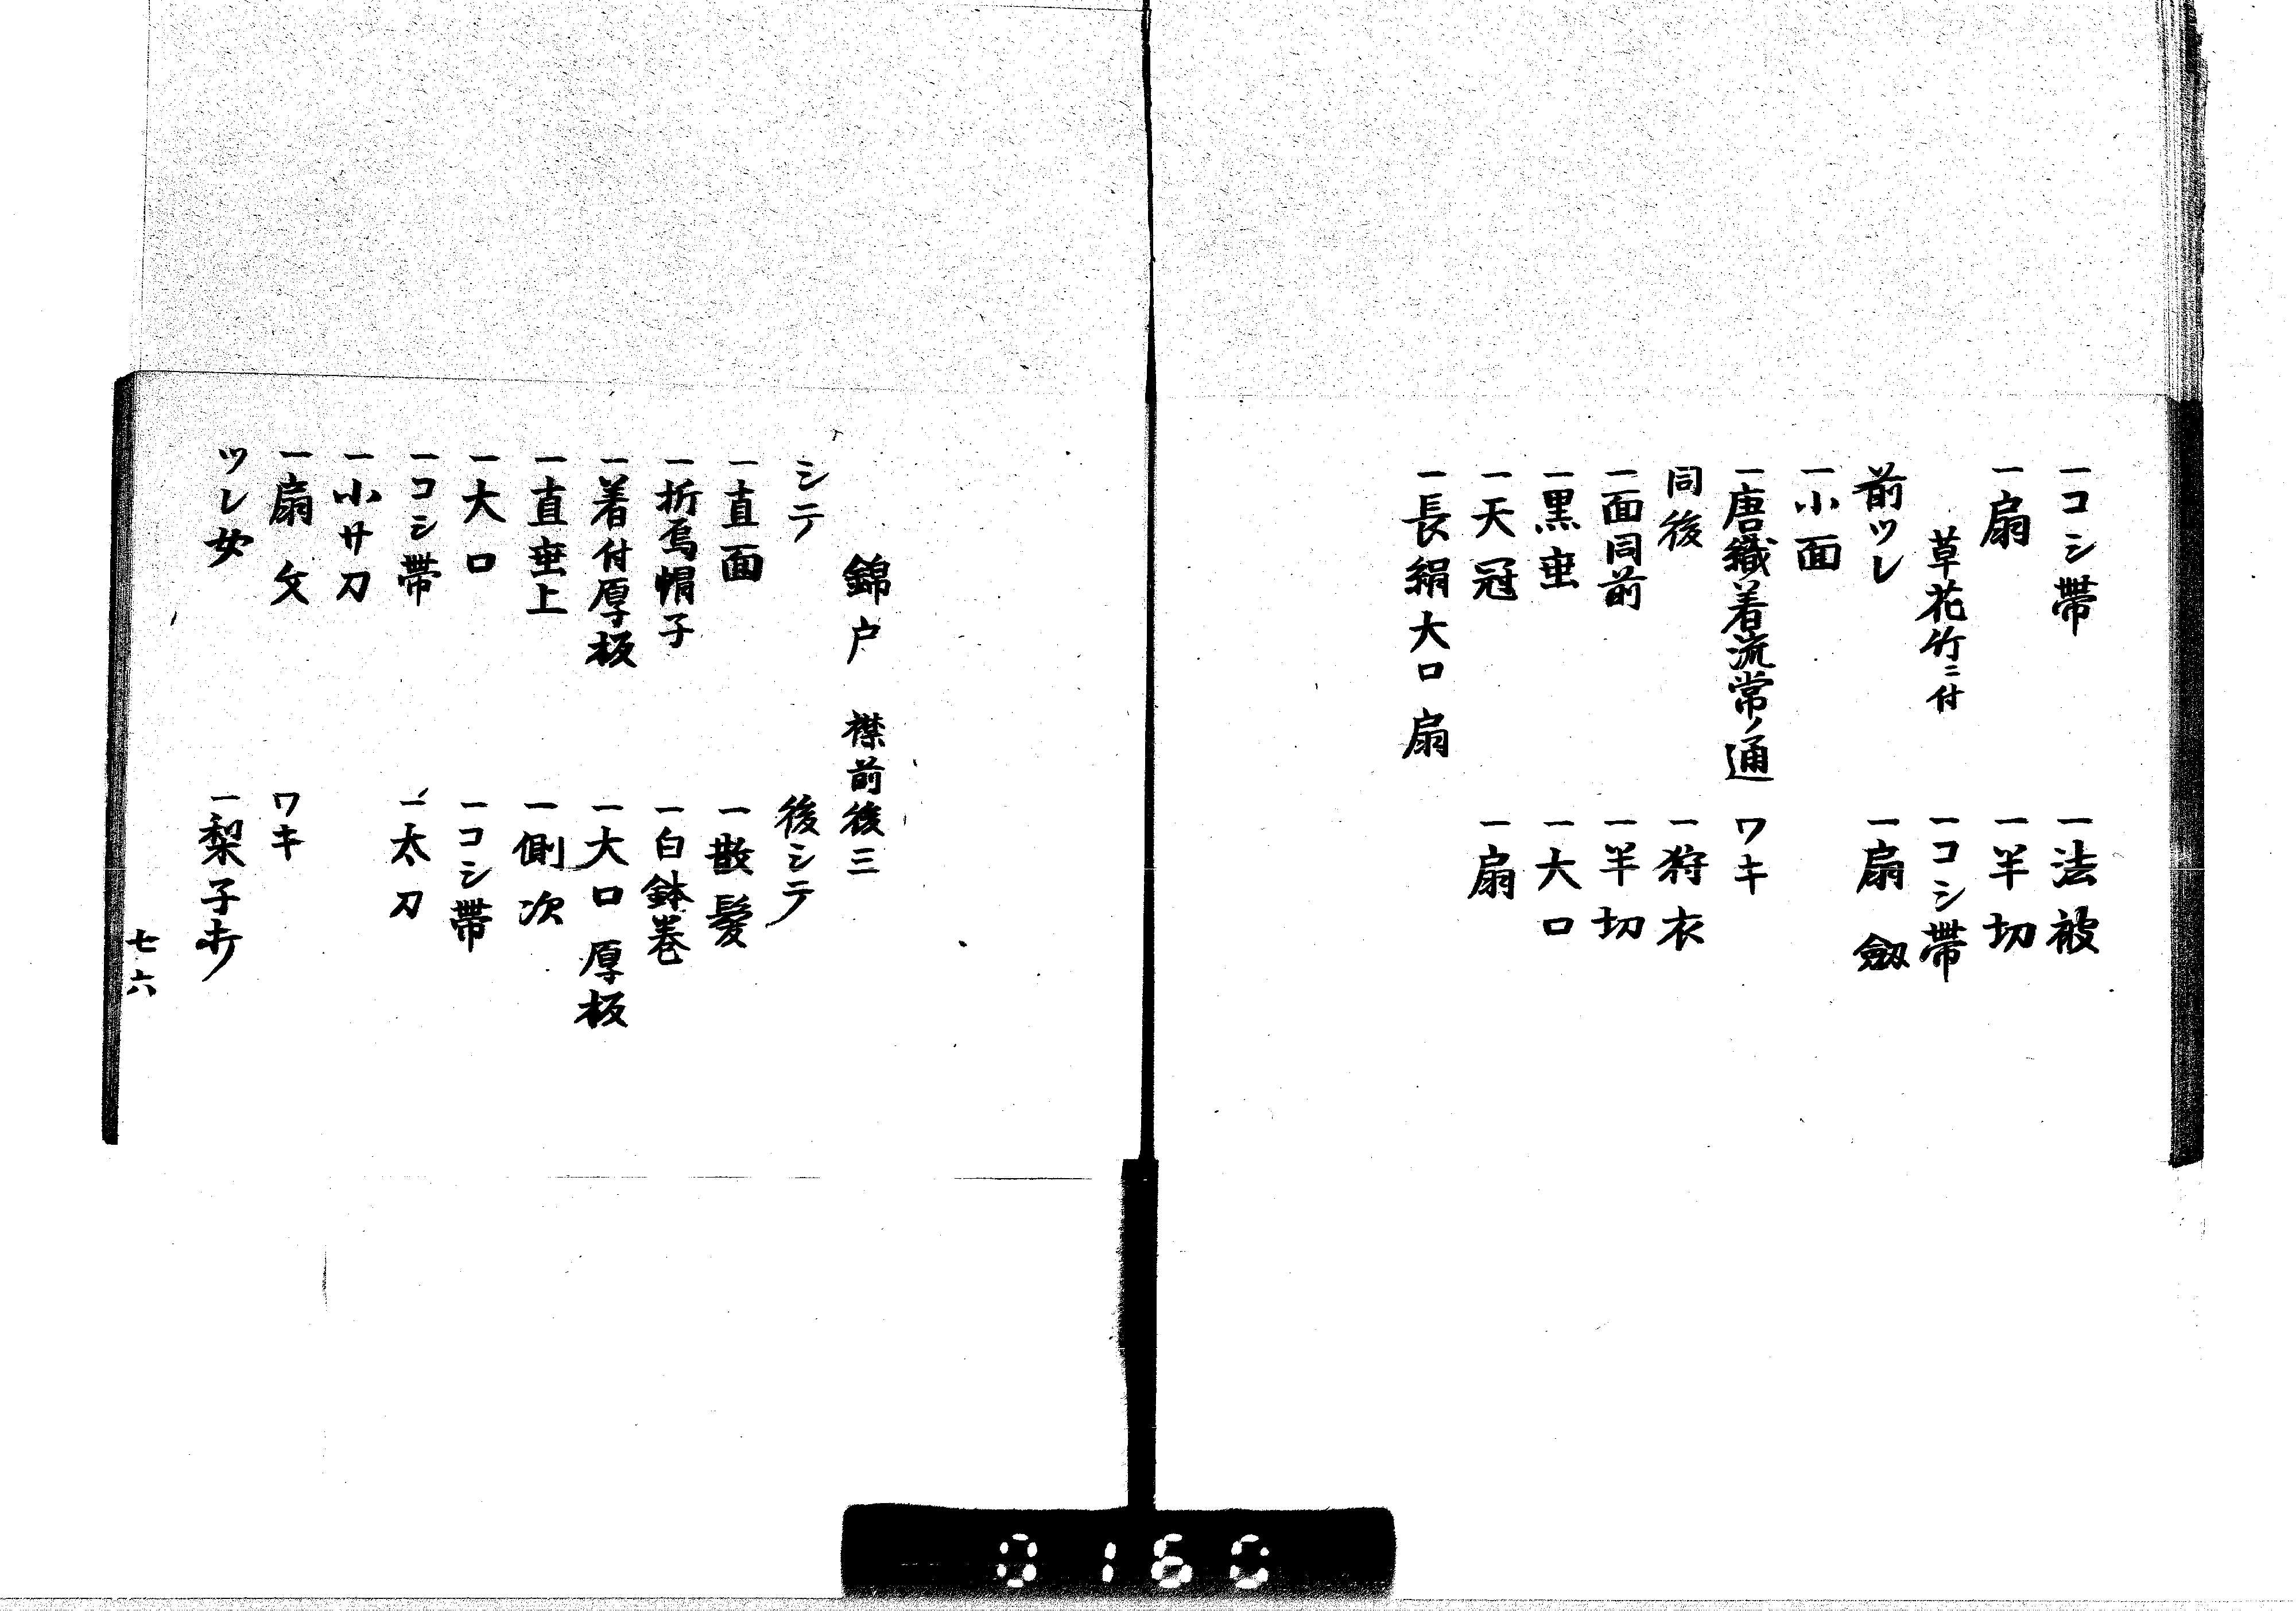 一コシ帯
一扇
草花竹ニ付
前ツレ
一小面
一唐織着流常ノ通
同後
一面同前
一黒垂
一天冠
一長絹大口 扇
一法被
一半切
一コシ帯
一扇 劔
ワキ
一狩衣
一半切
一大口
一扇
錦戸 襟前後三
シテ
一直面
一折烏帽子
一着付厚板
一直垂上
一大口
一コシ帯
一小サ刀
一扇 文
ツレ女
後シテ
一散髪
一白鉢巻
一大口 厚板
一側次
一コシ帯
一太刀
ワキ
一梨子打
七六
0160